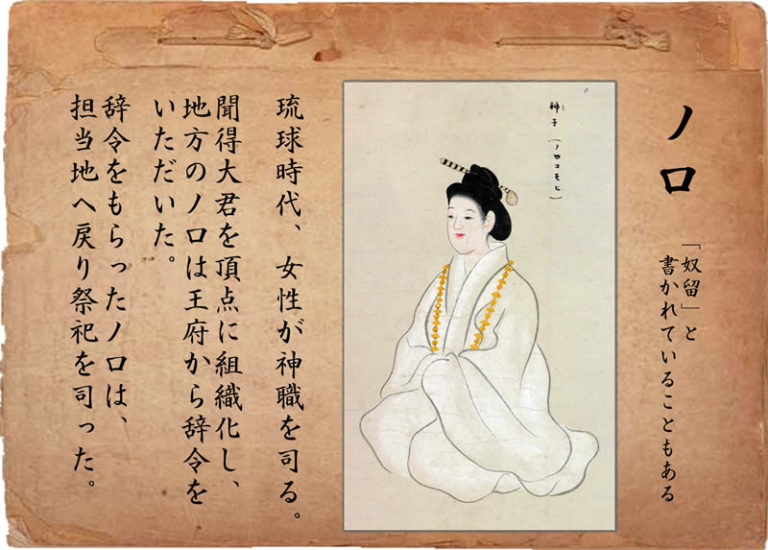 ノロ
「奴留」と
書かれていることもある
神子(ノロコモヒ)
琉球時代、女性が神職を司る。
聞得大君を頂点に組織化し、
地方のノロは王府から辞令を
いただいた。
辞令をもらったノロは、
担当地へ戻り祭祀を司った。